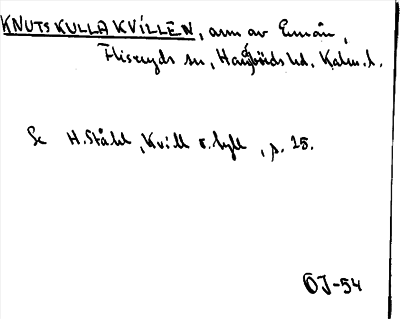 KNUTSKULLAKVILLEN, arm av Emån,
Fliseryds sn, Handbörds hd, Kalm. l.
Se H. Ståhl, Kvill o. hyll, s. 15.
ÖJ-54